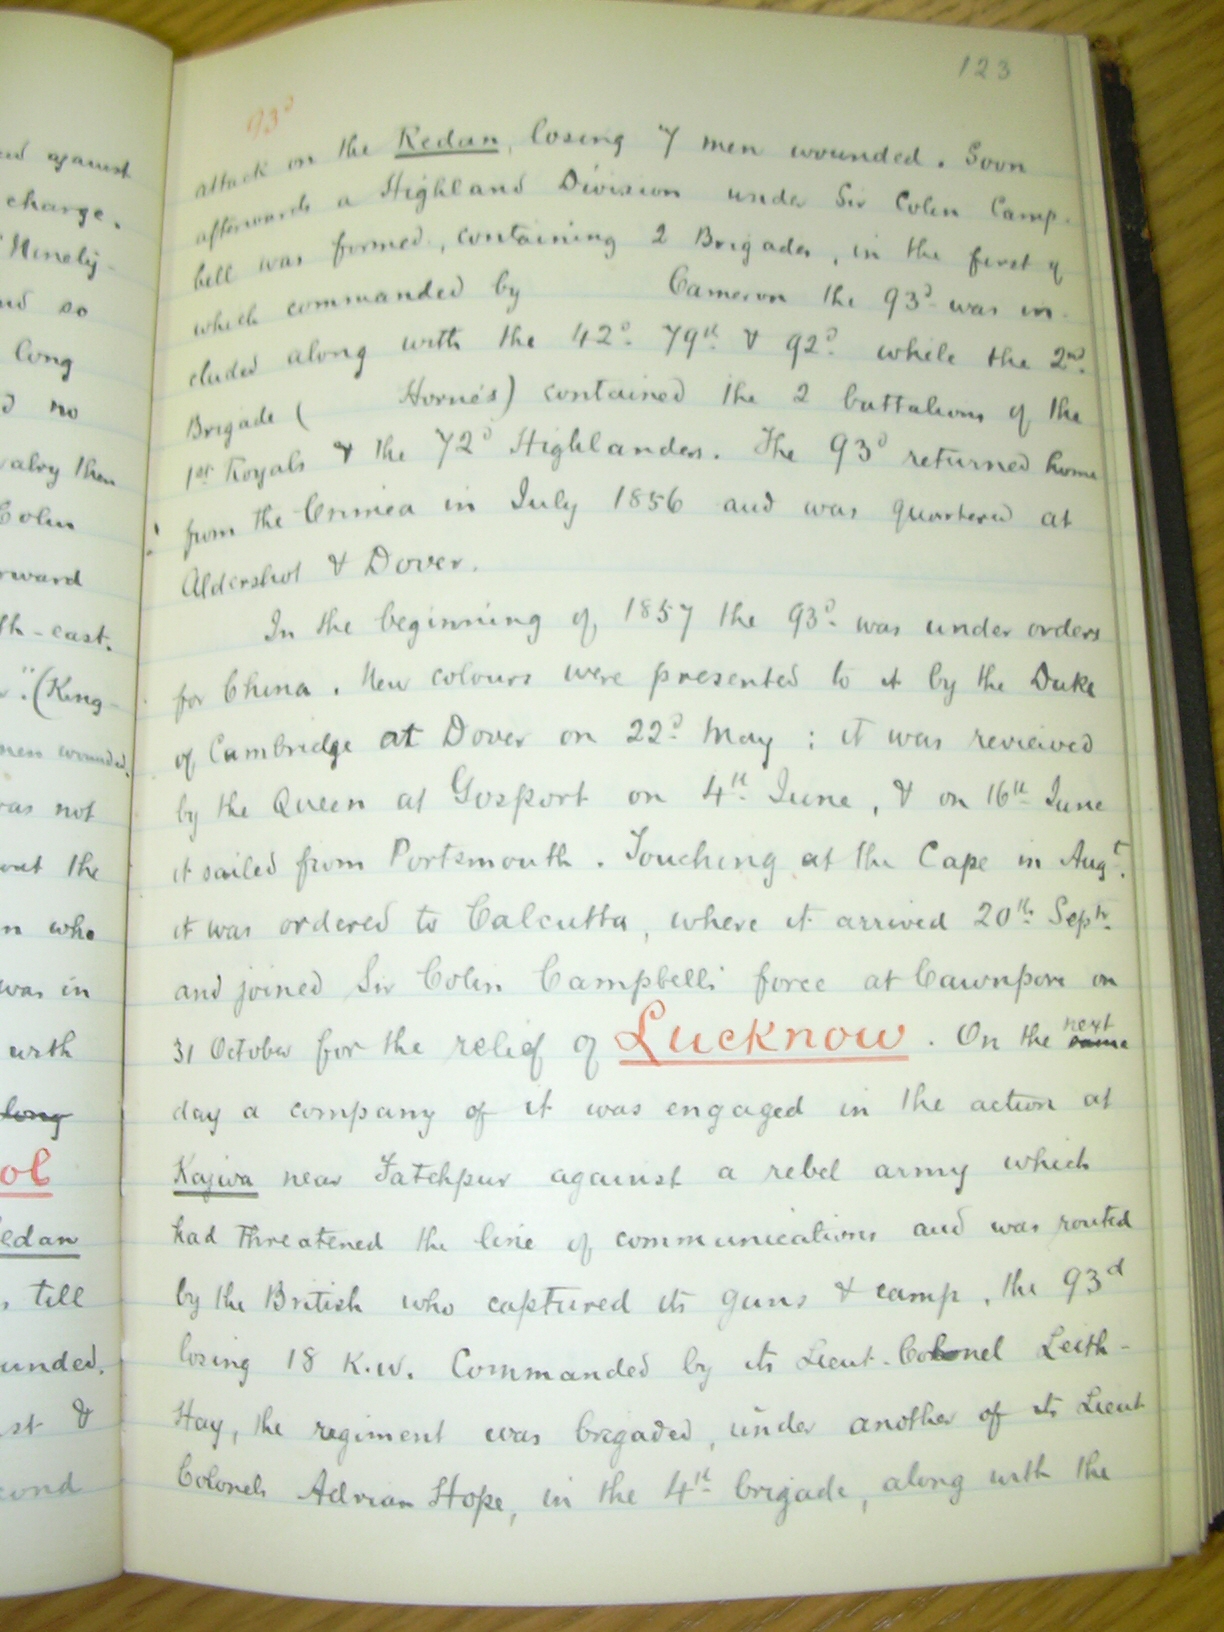 123
93d
attack on the Redan, losing 7 men wounded. Soon
afterwards a Highland Division under Sir Colin Camp-
bell was formed, containing 2 Brigades, in the first of
which commanded by Cameron the 93d was in-
cluded along with the 42d 79th & 92d while the 2nd
Brigade ( Horne's) contained the 2 battalions of the
1st Royals & the 72d Highlanders. The 93d returned home
from the Crimea in July 1856 and was quartered at
Aldershot & Dover.
In the beginning of 1857 the 93d was under orders
for China. New colours were presented to it by the Duke
of Cambridge at Dover on 22d May : it was reviewed
by the Queen at Gosport on 4th June, & on 16th June
it sailed from Portsmouth. Touching at the Cape in Augt.
it was ordered to Calcutta, where it arrived 20th Septr.
and joined Sir Colin Campbell's force at Cawnpore on
31 October for the relief of Lucknow. On the same next
day a company of it was engaged in the action at
Kajwa near Fatehpur against a rebel army which
had threatened the line of communications and was routed
by the British who captured its guns & camp, the 93d
losing 18 K.W. Commanded by its Lieut. Colonel Leith-
Hay, the regiment was brigaded, under another of its Lieut
Colonels Adrian Hope, in the 4th brigade, along with the
against
charge.
Ninety-
so
long
no
valry then
Colin
rward
th-east.
". (King-
men wounded.
was not
out the
who
was in
with
long
ol
edan
till
unded.
st &
cond